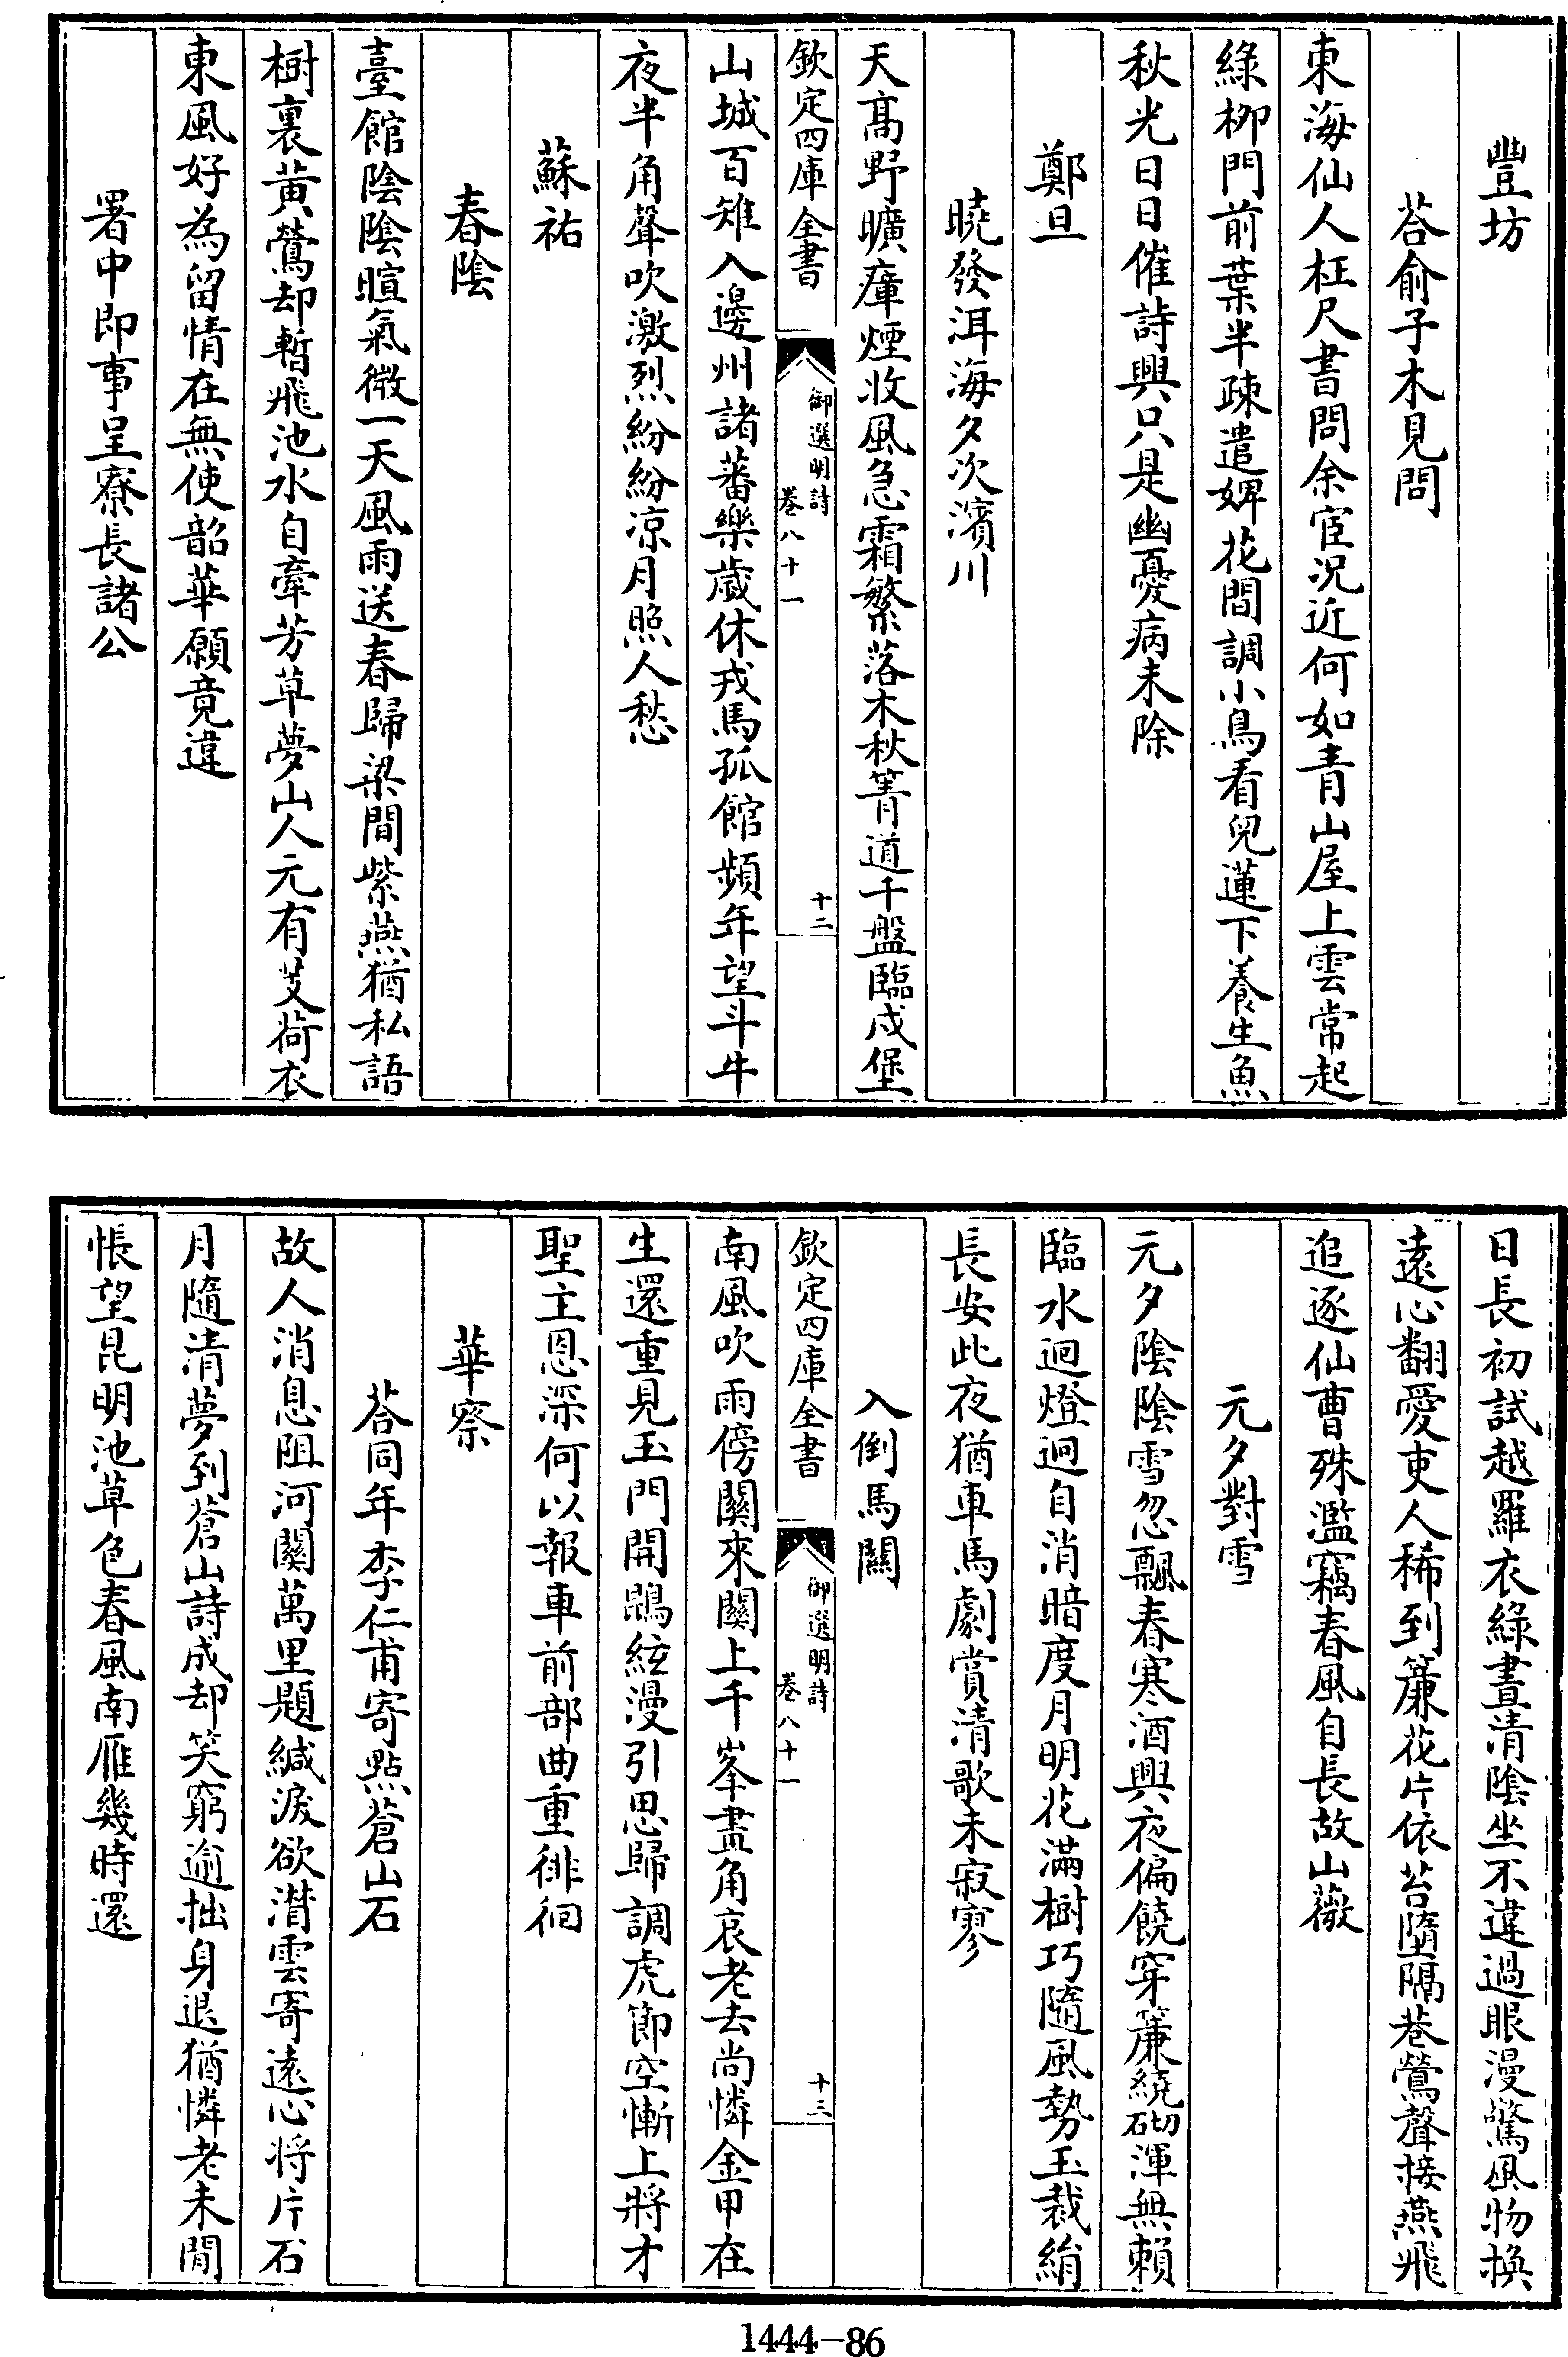 豐坊
荅俞子木見問
東海仙人枉尺書問余宦况近何如青山屋上雲常起
綠栁門前葉半疎遣婢花間調小鳥看兒蓮下養生魚
秋光日日催詩興只是幽憂病未除
鄭旦
曉發洱海夕次濱川
天髙野曠瘴煙收風急霜繁落木秋箐道千盤臨戍堡
欽定四庫全書
御選明詩
卷八十一
十二
山城百雉入邊州諸蕃樂歲休戎馬孤館頻年望斗牛
夜半角聲吹激烈紛紛凉月照人愁
蘇祐
春陰
臺館陰陰暄氣微一天風雨送春歸梁間紫燕猶私語
樹裏黄鶯却暫飛池水自牽芳草夢山人元有芰荷衣
東風好為留情在無使韶華願竟違
署中即事呈寮長諸公
日長初試越羅衣綠晝清陰坐不違過眼漫驚風物換
遠心翻愛吏人稀到簾花片依苔墮隔巷鶯聲接燕飛
追逐仙曹殊濫竊春風自長故山薇
元夕對雪
元夕陰陰雪忽飄春寒酒興夜偏饒穿簾繞砌渾無賴
臨水迴燈迥自消暗度月明花滿樹巧隨風勢玉裁綃
長安此夜猶車馬劇賞清歌未寂寥
入倒馬關
欽定四庫全書
御選明詩
卷八十一
十三
南風吹雨傍關來關上千峯畫角哀老去尚憐金甲在
生還重見玉門開鵾絃漫引思歸調虎節空慚上將才
聖主恩深何以報車前部曲重徘徊
華察
荅同年李仁甫寄點蒼山石
故人消息阻河關萬里題緘淚欲潸雲寄遠心将片石
月隨清夢到蒼山詩成却笑窮逾拙身退猶憐老未閒
悵望昆明池草色春風南雁幾時還
1444-86